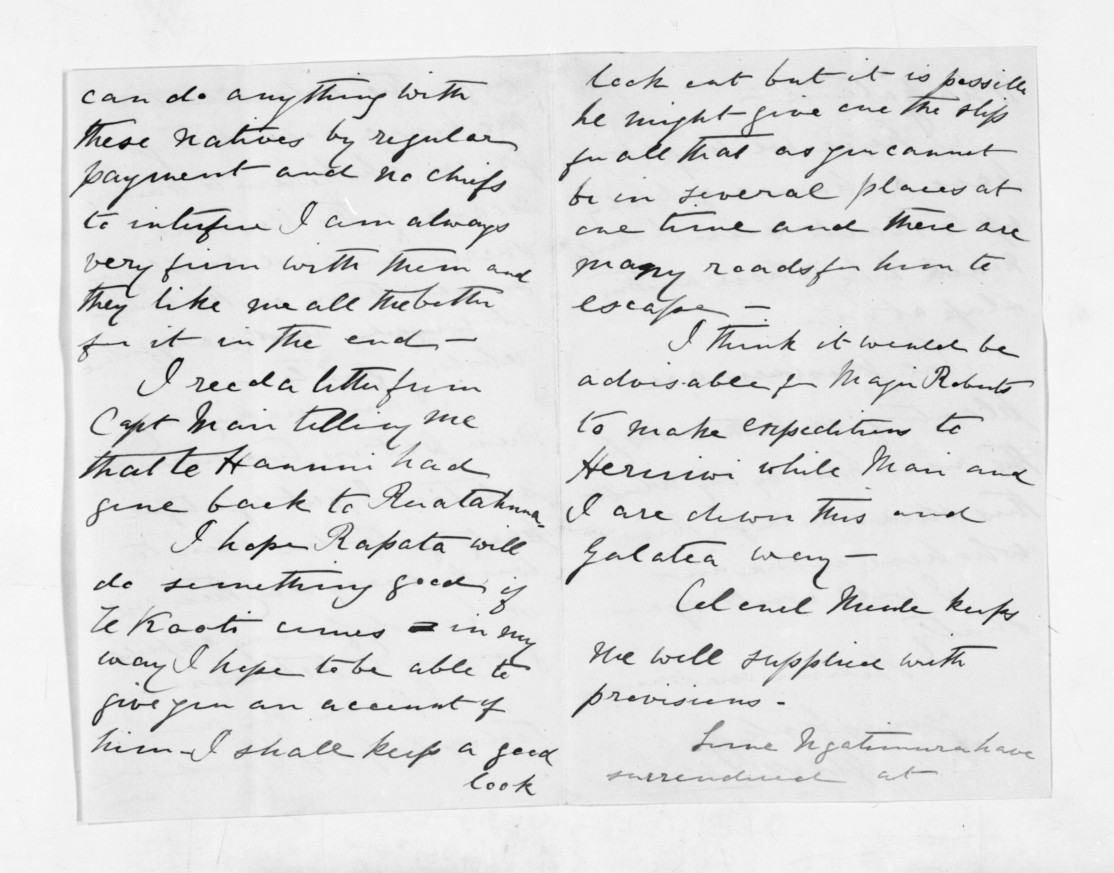 can do anything with
these natives by regular
payment and no chiefs
to interfere I am always
very firm with them and
they like me all the better
for it in the end —
I recd a letter from
Capt Mair telling me
that te Haunui had
gone back to Ruatahuna.
I hope Rapata will
do something good, if
Te Kooti comes in my
way I hope to be able to
give you an account of
him — I shall keep a good
look
look out but it is possible
he might give one the slip
for all that as you cannot
be in several places at
one time and there are
many roads for him to
escape —
I think it would be
advisable for Major Roberts
to make expeditions to
Heruiwi while Mair and
I are down this and
Galatea way —
Colonel Moule keeps
me well supplied with
provisions -
Some Ngatimura have
surrendered at